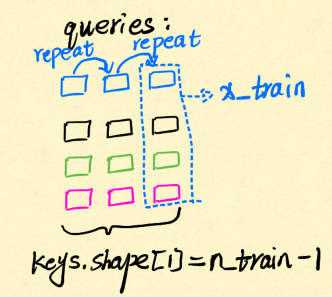 queries:
repeat repeat
x_train
keys.shape[1]=n_train-1